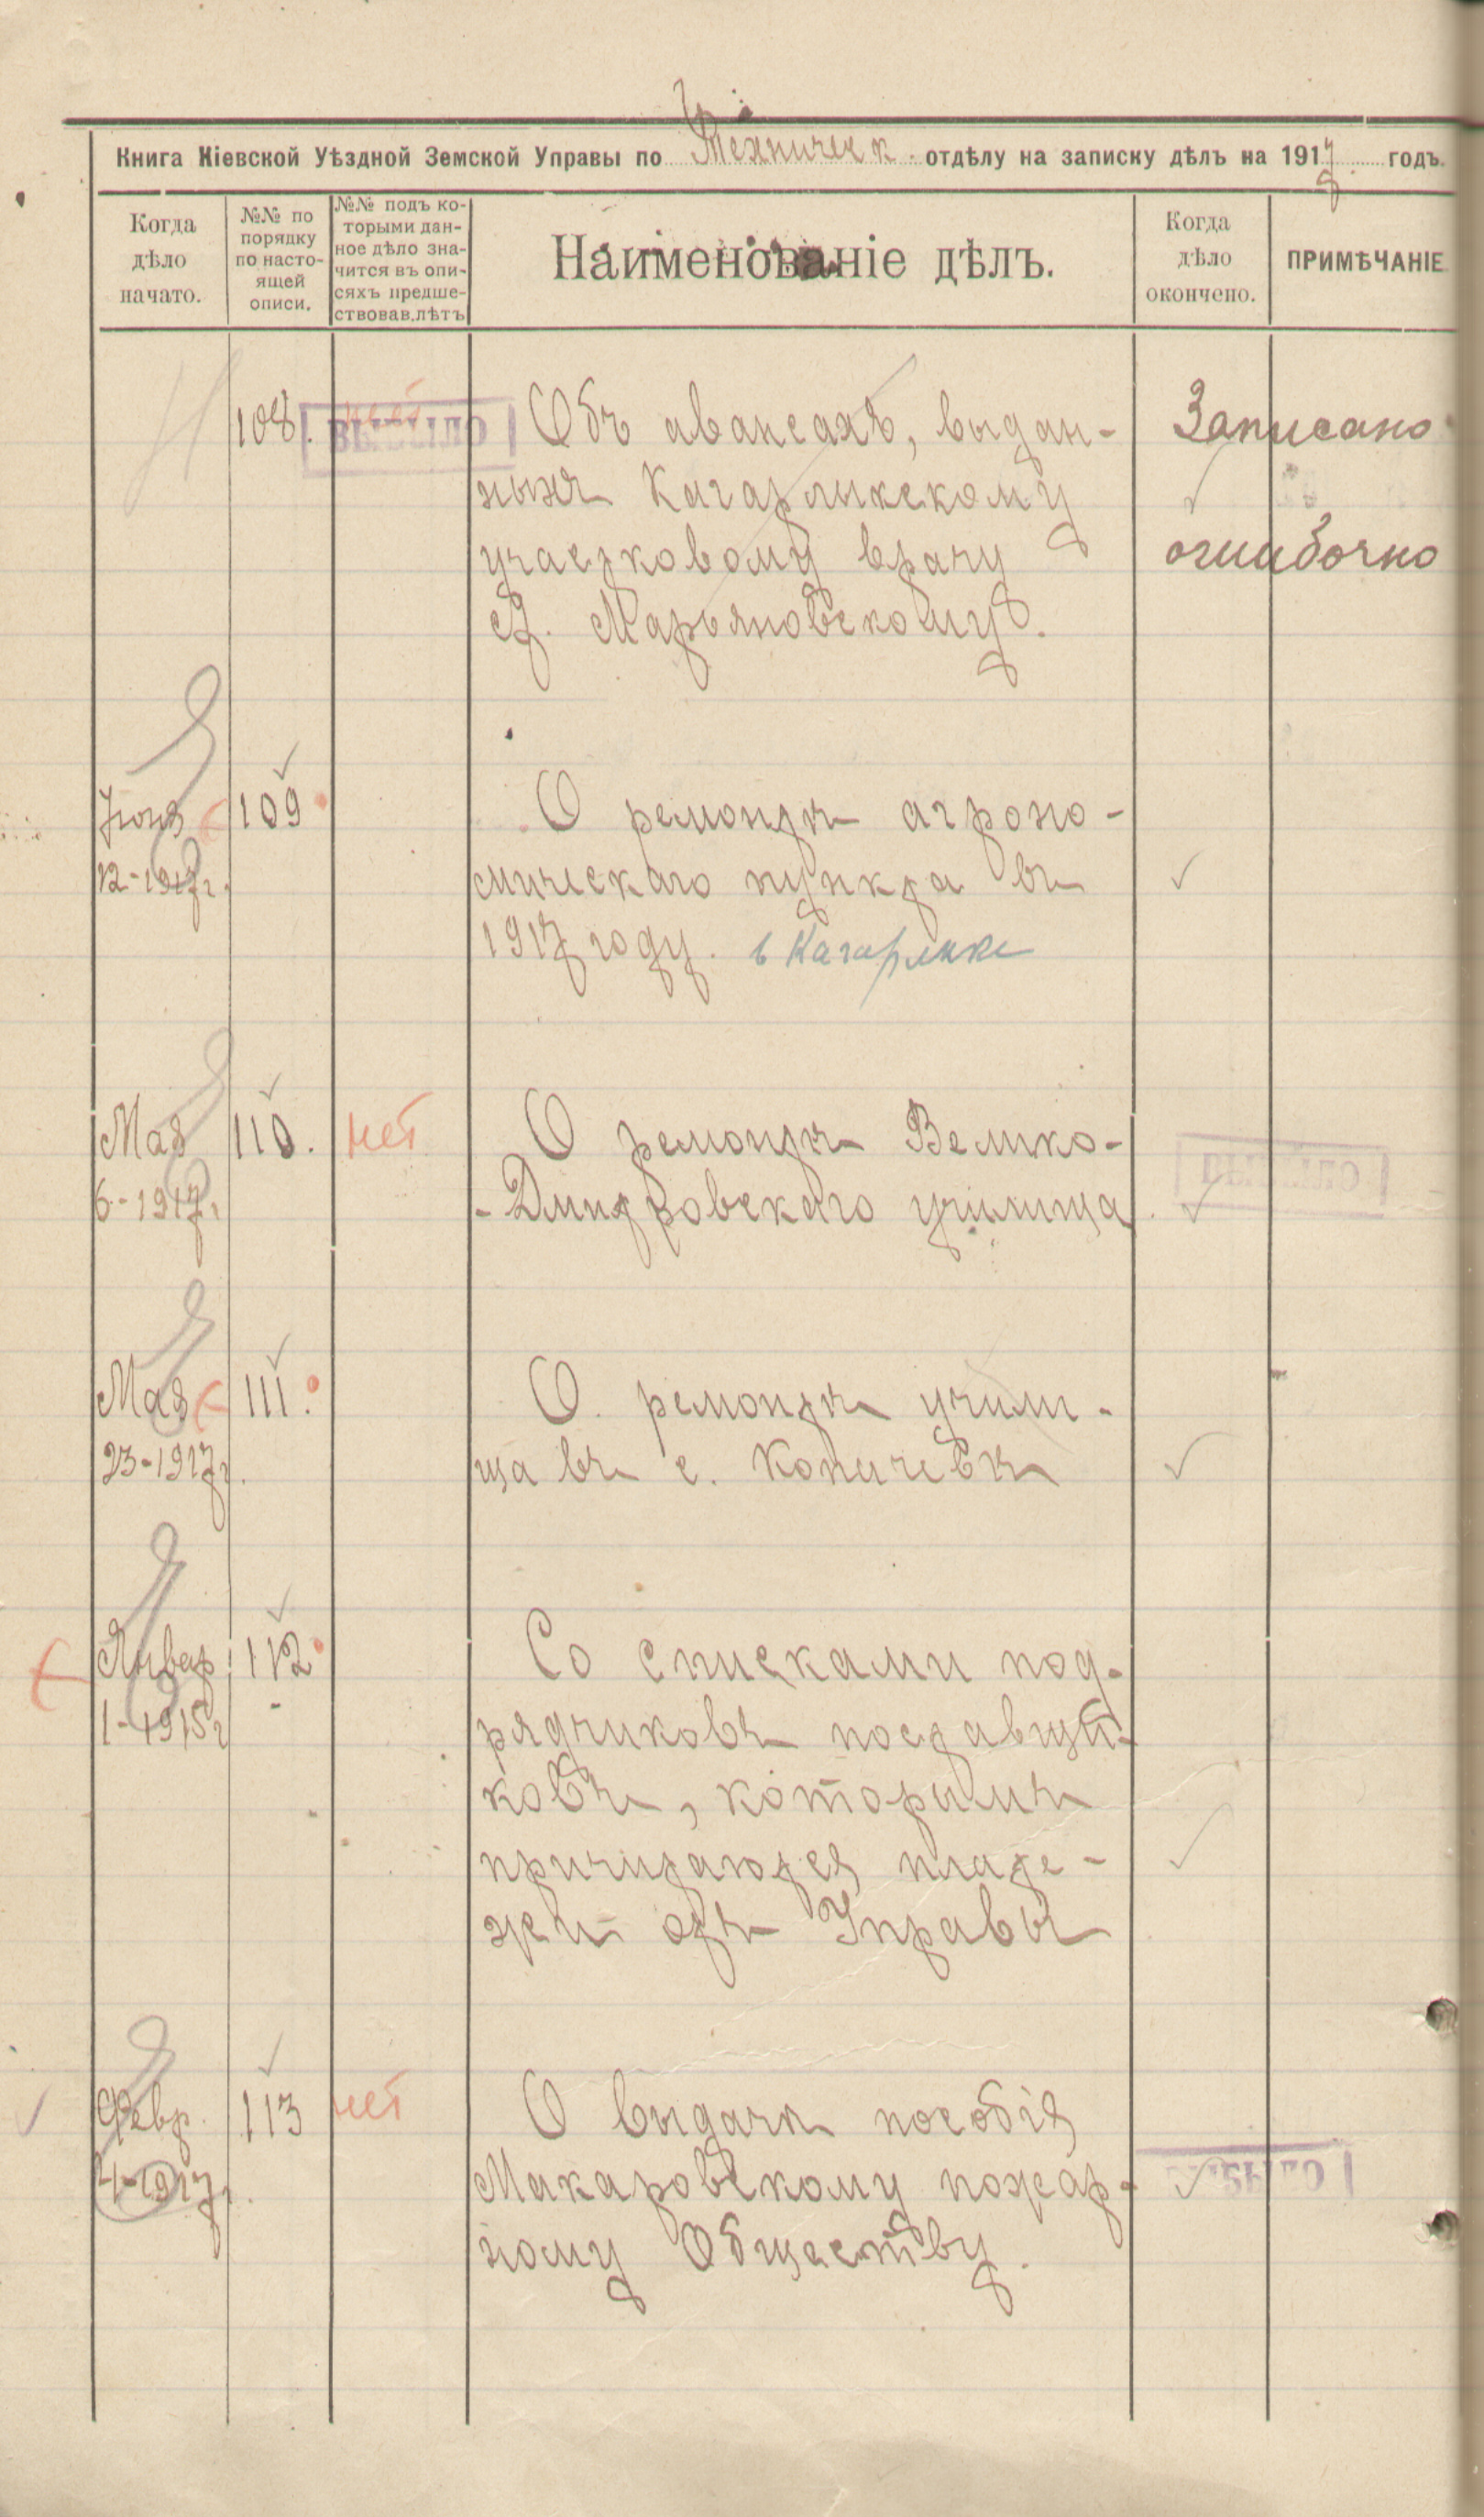 Книга Кіевской Уѣздной Земской Управы по Техническ. отдѣлу на записку дѣлъ на 1917 годъ.
Когда
дѣло
начато.
№№ по
порядку
по насто-
ящей
описи.
№№ подъ ко-
торыми дан-
ное дѣло зна-
чится въ опи-
сяхъ предше-
ствовав.лѣтъ
Наименованіе дѣлъ.
Когда
дѣло
окончено.
ПРИМѢЧАНІЕ
108. нет ВЫБЫЛО Объ авансахъ, выдан- Записано
ныхъ Кагарлыкскому
участковому врачу ошибочно
Марьяновскому.
Іюня 109 О ремонтѣ агроно-
12-1917г. мическаго пункта въ
1917 году. в Кагарлике
Мая 110. нет О ремонтѣ Велико-
6-1917г. -Дмитровскаго училища.
Мая 111. О ремонтѣ учили-
23-1917г. ща въ с. Копачевѣ
Январ 112 Со списками под-
1-1915г рядчиковъ поставщи-
ковъ, которымъ
причитаются плате-
жи отъ Управы
Февр. 113 нет О выдачѣ пособія
4-1917г. Макаровскому пожар-
ному Обществу.